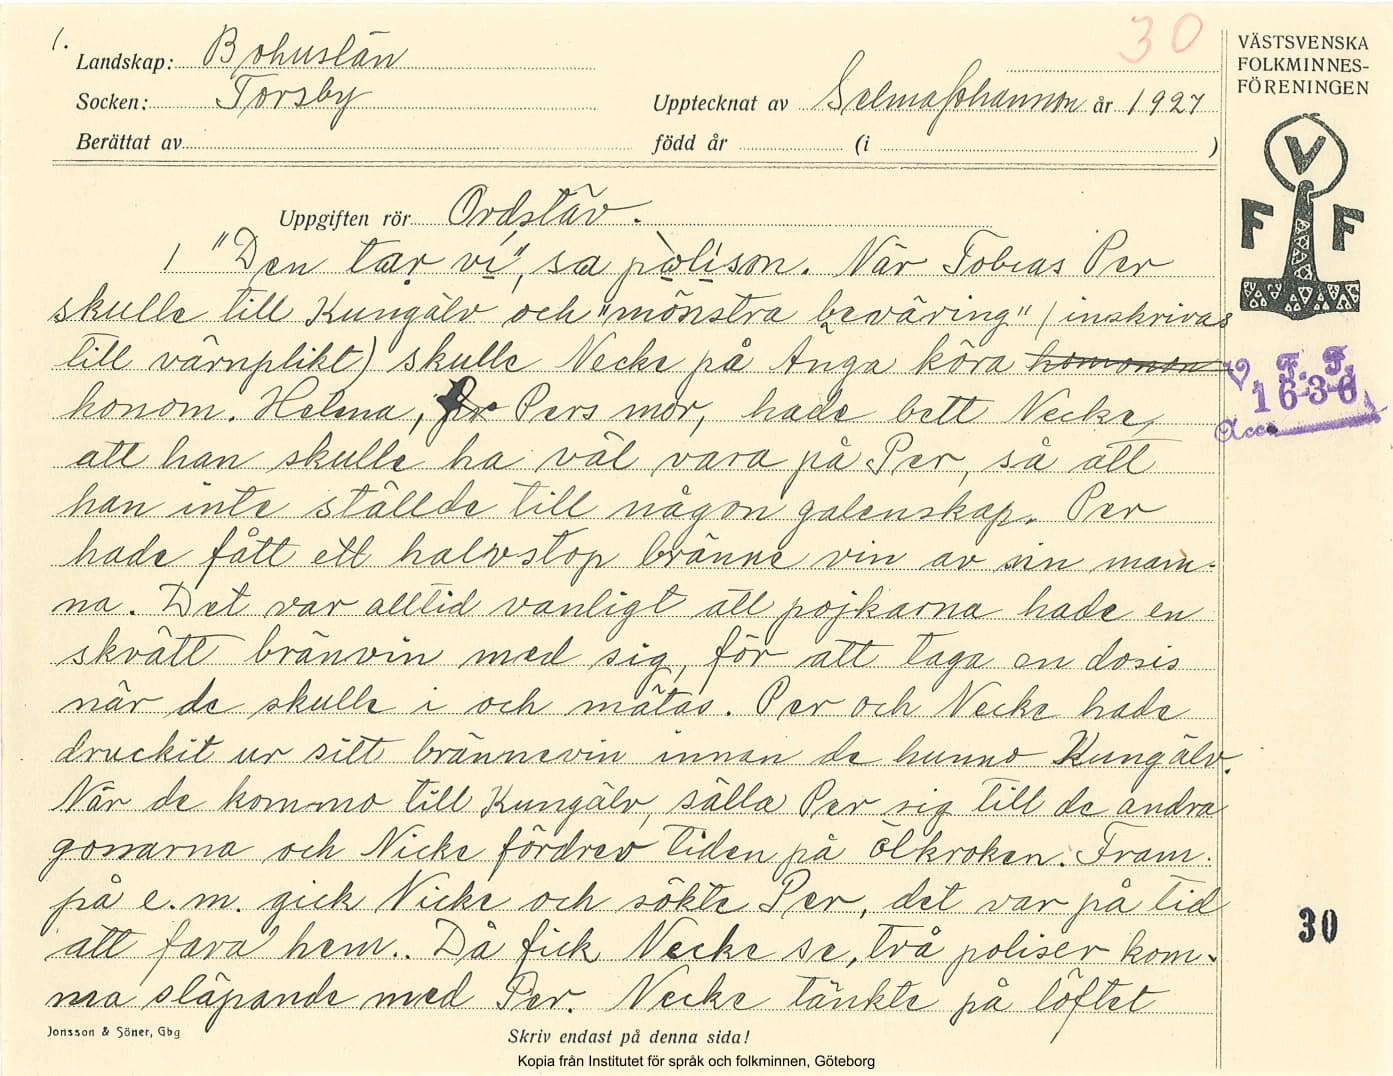 1.
30
Landskap: Bohuslän
Socken: Torsby
Upptecknat av Selma Johannson år 1927
Berättat av
född år (i )
VÄSTSVENSKA
FOLKMINNES-
FÖRENINGEN
V
F F
Uppgiften rör Ordstäv.
1 "Den tar vi", sa polisn. När Tobias Per
skulle till Kungälv och "mönstra beväring" (inskrivas
till värnplikt) skulle Necke på Änga köra honom
honom. Helena, Per Pers mor, hade bett Necke,
att han skulle ha väl vara på Per, så att
han inte ställde till någon galenskap. Per
hade fått ett halvstop bränne vin av sin mam-
na. Det var alltid vanligt att pojkarna hade en
skvätt bränvin med sig, för att taga en dosis
när de skulle i och mätas. Per och Necke hade
druckit ur sitt brännevin innan de hunno Kungälv.
När de kommo till Kungälv, sälla Per sig till de andra
gossarna och Nicke fördrev tiden på ölkroken. Fram-
på e.m. gick Nicke och sökte Per, det var på tid
att fara hem.. Då fick Necke se, två poliser kom-
ma släpande med Per. Necke tänkte på löftet
V. F. F.
1636
Acc.
30
Jonsson & Söner, Gbg
Skriv endast på denna sida!
Kopia från Institutet för språk och folkminnen, Göteborg